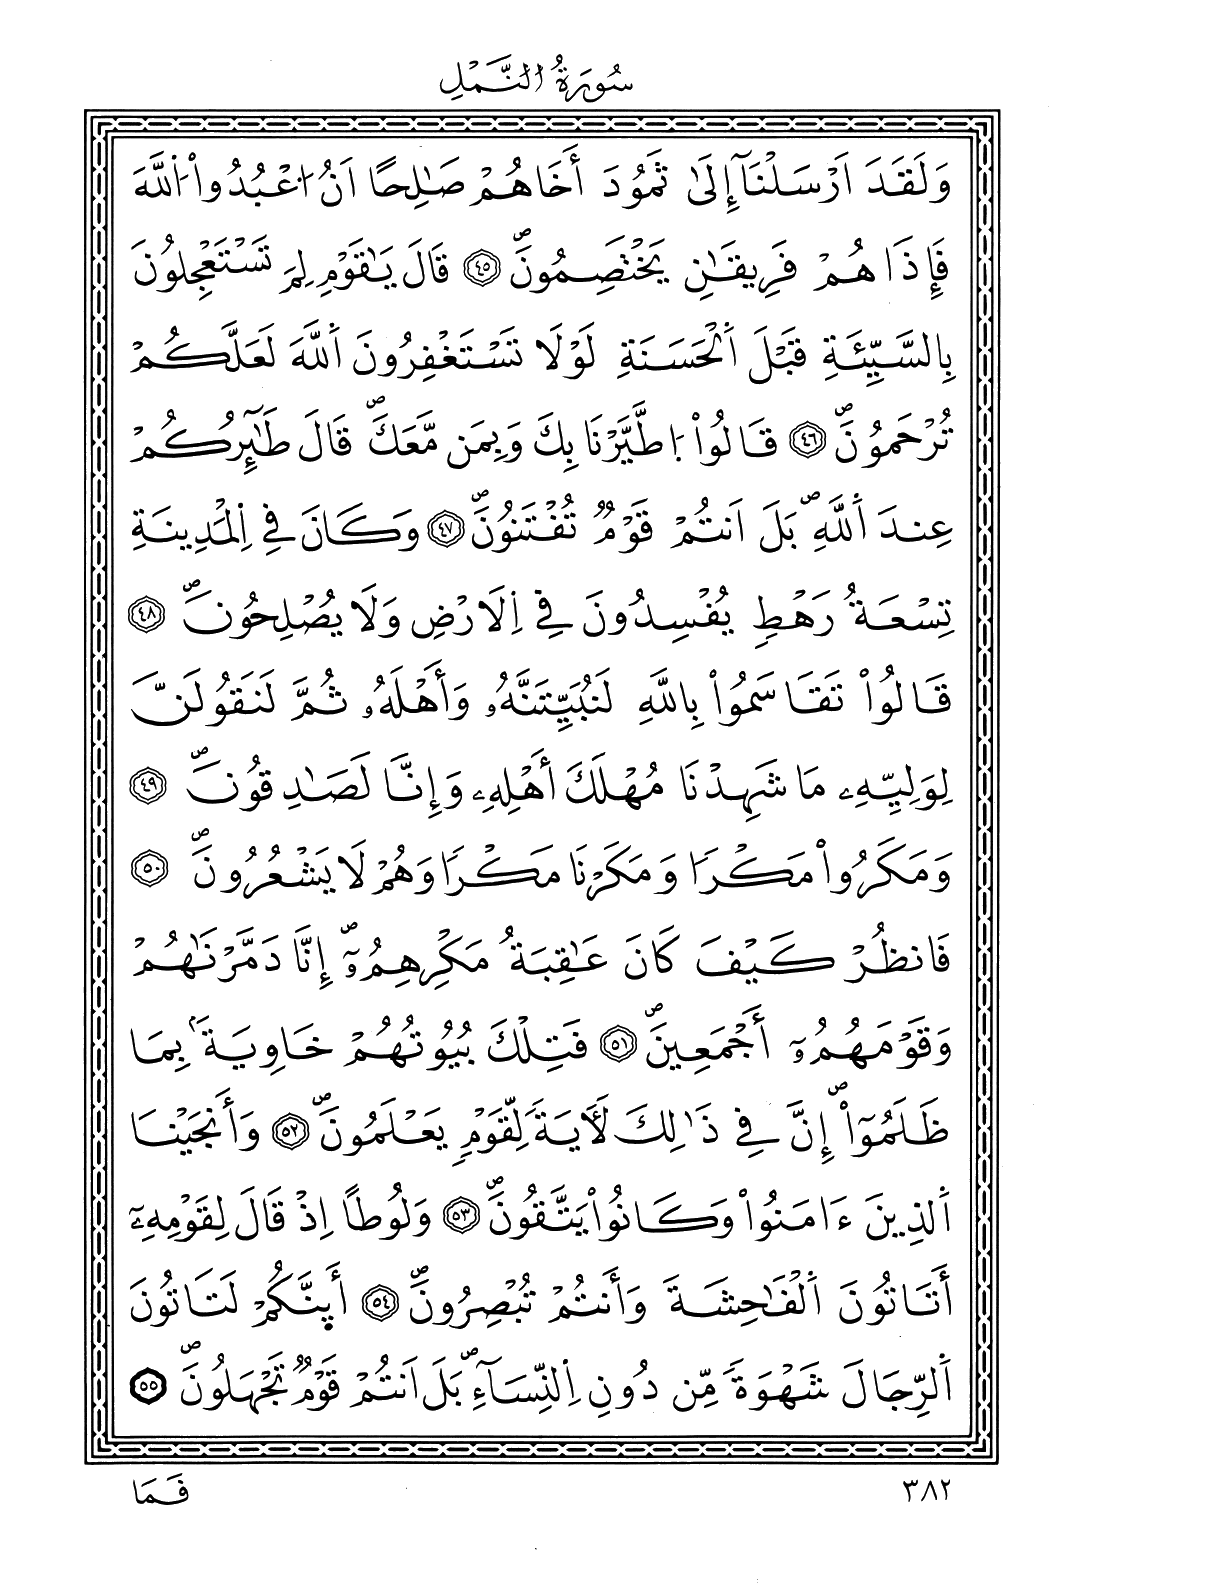 سُورَةُ النَّمْلِ
وَلَقَدَ اَرْسَلْنَآ إِلَىٰ ثَمُودَ أَخَاهُمْ صَٰلِحًا اَنُ اُعْبُدُواْ اُللَّهَ
فَإِذَا هُمْ فَرِيقَٰنِ يَخْتَصِمُونَۖ ٤٥ قَالَ يَٰقَوْمِ لِمَ تَسْتَعْجِلُونَ
بِالسَّيِّئَةِ قَبْلَ اَلْحَسَنَةِ لَوْلَا تَسْتَغْفِرُونَ اَللَّهَ لَعَلَّكُمْ
تُرْحَمُونَۖ ٤٦ قَالُواْ اُطَّيَّرْنَا بِكَ وَبِمَن مَّعَكَۖ قَالَ طَٰٓئِرُكُمْ
عِندَ اَللَّهِۖ بَلَ اَنتُمْ قَوْمٌ تُفْتَنُونَۖ ٤٧ وَكَانَ فِي اِلْمَدِينَةِ
تِسْعَةُ رَهْطٍ يُفْسِدُونَ فِي اِلَارْضِ وَلَا يُصْلِحُونَۖ ٤٨
قَالُواْ تَقَاسَمُواْ بِاللَّهِ لَنُبَيِّتَنَّهُۥ وَأَهْلَهُۥ ثُمَّ لَنَقُولَنَّ
لِوَلِيِّهِۦ مَا شَهِدْنَا مُهْلَكَ أَهْلِهِۦ وَإِنَّا لَصَٰدِقُونَۖ ٤٩
وَمَكَرُواْ مَكْرًا وَمَكَرْنَا مَكْرًا وَهُمْ لَا يَشْعُرُونَۖ ٥٠
فَانظُرْ كَيْفَ كَانَ عَٰقِبَةُ مَكْرِهِمُۥٓۖ إِنَّا دَمَّرْنَٰهُمْ
وَقَوْمَهُمُۥٓ أَجْمَعِينَۖ ٥١ فَتِلْكَ بُيُوتُهُمْ خَاوِيَةَۢ بِمَا
ظَلَمُوٓاْۖ إِنَّ فِي ذَٰلِكَ لَأٓيَةً لِّقَوْمٍ يَعْلَمُونَۖ ٥٢ وَأَنجَيْنَا
اَلذِينَ ءَامَنُواْ وَكَانُواْ يَتَّقُونَۖ ٥٣ وَلُوطًا اِذْ قَالَ لِقَوْمِهِۦٓ
أَتَاتُونَ اَلْفَٰحِشَةَ وَأَنتُمْ تُبْصِرُونَۖ ٥٤ أَى۪نَّكُمْ لَتَاتُونَ
اَلرِّجَالَ شَهْوَةً مِّن دُونِ اِلنِّسَآءِۖ بَلَ اَنتُمْ قَوْمٌ تَجْهَلُونَۖ ٥٥
فَمَا
٣٨٢